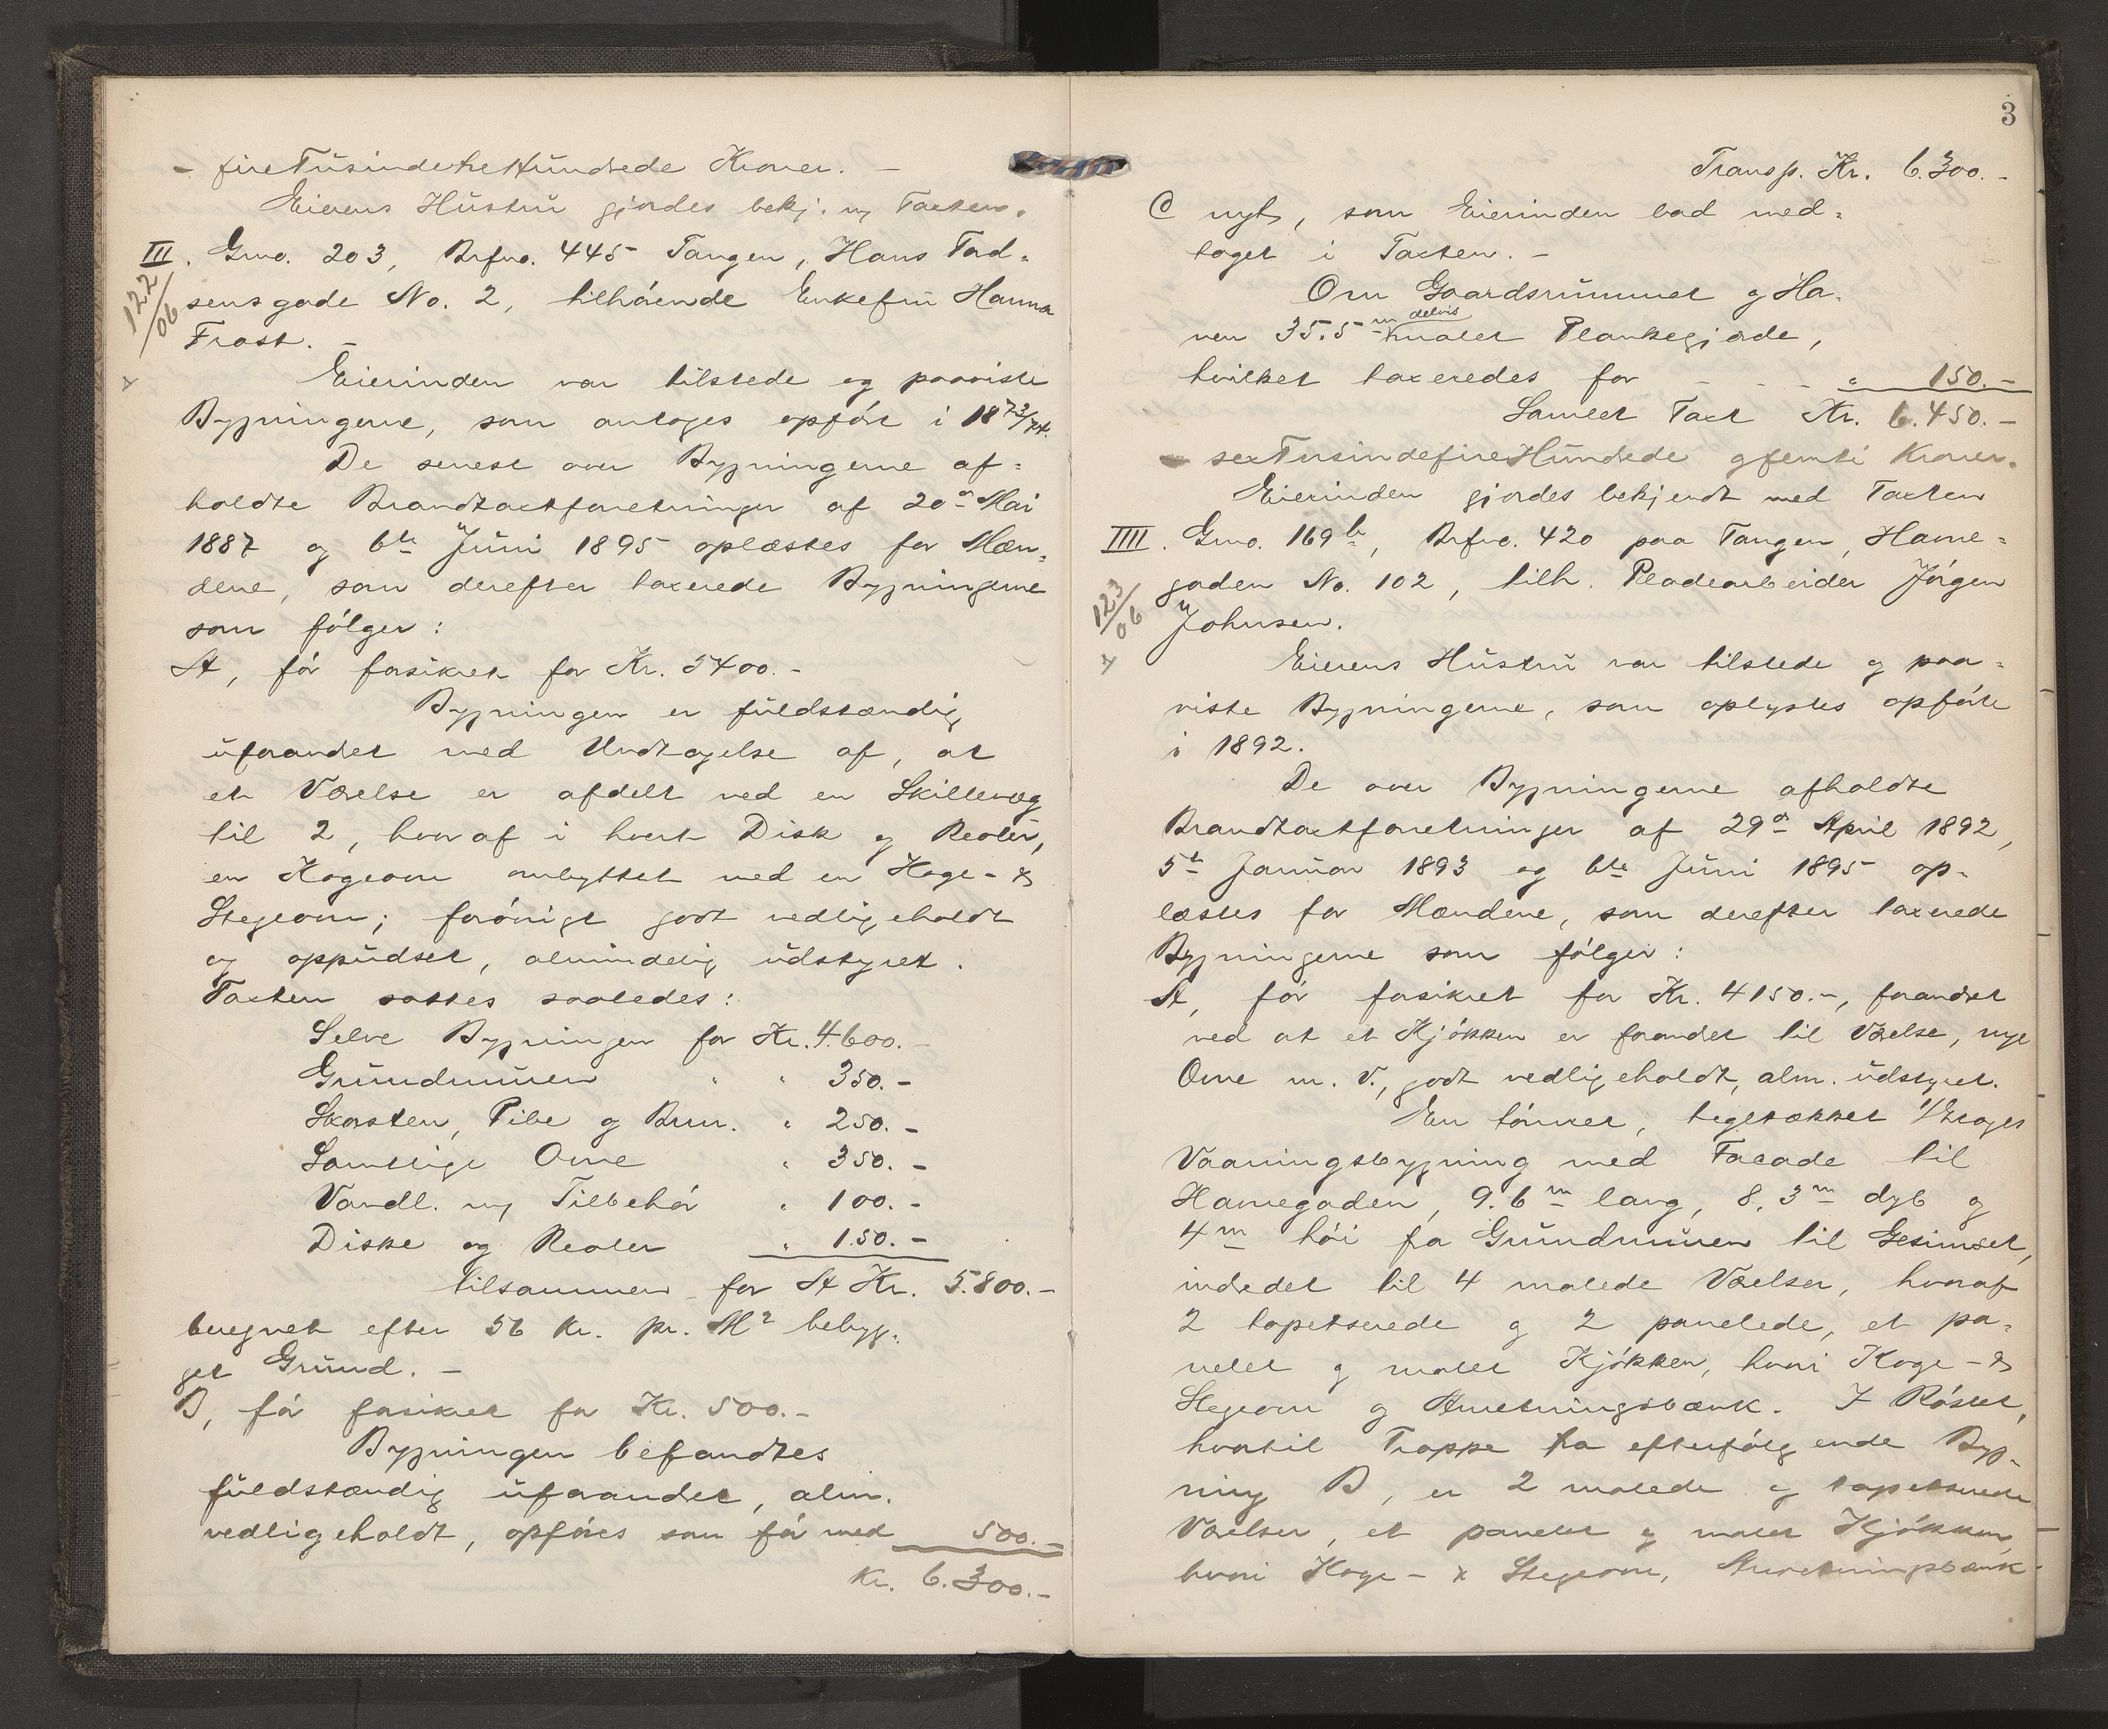 - fireTusindetreHundrede Kroner. -
Eierens Hustru gjordes bekj. m/ Taxten.
III. Grno. 203, Brfno. 445 Tangen, Hans Tord-
122/06
sensgade No. 2, tilhørende Enkefru Hanna
Frost. -
Eierinden var tilstede og paaviste
Bygningerne, som antoges opført i 1873/74.
De senest over Bygningerne af-
holdte Brandtaxtforretninger af 20de Mai
1887 og 6te Juni 1895 oplæstes for Mæn-
dene, som derefter taxerede Bygningerne
som følger:
A, før forsikret for Kr. 5400.-
Bygningen er fuldstændig
uforandret med Undtagelse af, at
et Værelse er afdelt ved en Skillevæg
til 2, hvoraf i hvert Disk og Reoler,
en Kogeovn ombyttet med en Koge- &
Stegeovn; forøvrigt godt vedligeholdt
og oppudset, almindelig udstyret.
Taxten sattes saaledes:
Selve Bygningen for Kr. 4.600.-
Grundmuren " " 350.-
Skorsten, Pibe og Brm. " 250.-
Samtlige Ovne " 350.-
Vandl. m/ Tilbehør " 100.-
Diske og Reoler " 150.-
tilsammen for A Kr. 5.800.-
beregnet efter 56 Kr. pr. M² bebyg-
get Grund. -
B, før forsikret for Kr. 500.-
Bygningen befandtes
fuldstændig uforandret, alm.
vedligeholdt, opføres som før med 500.-
Kr. 6.300.-
3
Transp. Kr. 6.300.-
C nyt, som Eierinden bad med-
taget i Taxten. -
Om Gaardsrummet og Ha-
ven 35.5 m delvis malet Plankegjerde,
hvilket taxeredes for - - - " 150.-
Samlet Taxt Kr. 6.450.-
- sexTusindefireHundrede ogfemti Kroner.
Eierinden gjordes bekjendt med Taxten
IIII. Grno. 169b, Brfno. 420 paa Tangen, Havne-
123/06
gaden No. 102, tilh. Pladearbeider Jørgen
Johnsen.
Eierens Hustru var tilstede og paa-
viste Bygningerne, som oplystes opførte
i 1892.
De over Bygningerne afholdte
Brandtaxtforretninger af 29de April 1892,
5te Januar 1893 og 6te Juni 1895 op-
læstes for Mændene, som derefter taxerede
Bygningerne som følger:
A, før forsikret for Kr. 4150.-, forandret
ved at et Kjøkken er forandret til Værelse, nye
Ovne m. v., godt vedligeholdt, alm. udstyret.
En tømret, tegltækket 1/Etages
Vaaningsbygning med Facade til
Havnegaden, 9.6 m lang, 8.3 m dyb og
4 m høi fra Grundmuren til Gesimset,
indredet til 4 malede Værelser, hvoraf
2 tapetserede og 2 panelede, et pa-
nelet og malet Kjøkken, hvori Koge- &
Stegeovn og Anretningsbænk. I Røstet,
hvortil Trappe fra efterfølgende Byg-
ning B, er 2 malede og tapetserede
Værelser, et panelet og malet Kjøkken,
hvori Koge- & Stegeovn, Anretningsbænk